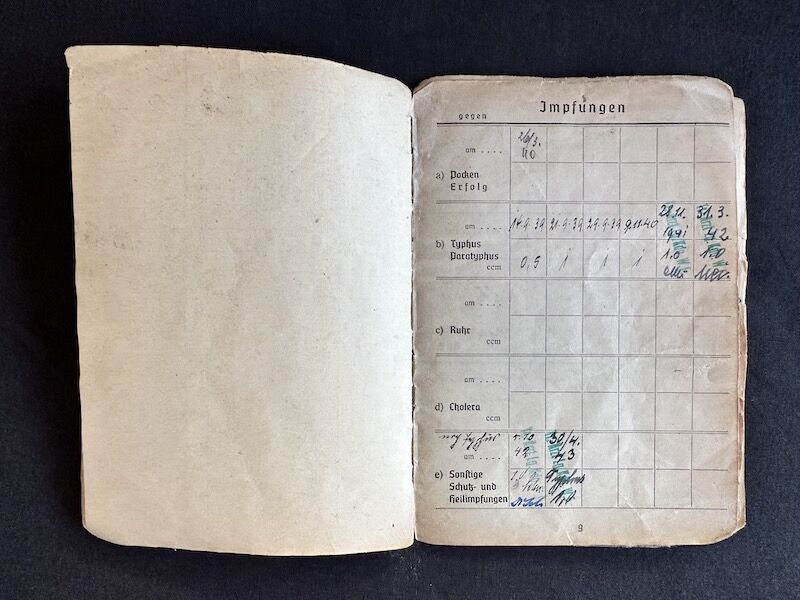 Impfungen
gegen
26/3.
40
am ....
a) Pocken
Erfolg
28.11. 31.3.
am .... 14.9.39 21.9.39 29.9.39 9.11.40 1941 42
b) Typhus
Paratyphus 1.0 1.0
ccm 0,5 1 1 1
am ....
c) Ruhr
ccm
am ....
d) Cholera
ccm
Typhus 30/4.
am .... 42 43
e) Sonstige Typhus
Schutz- und
Heilimpfungen
9